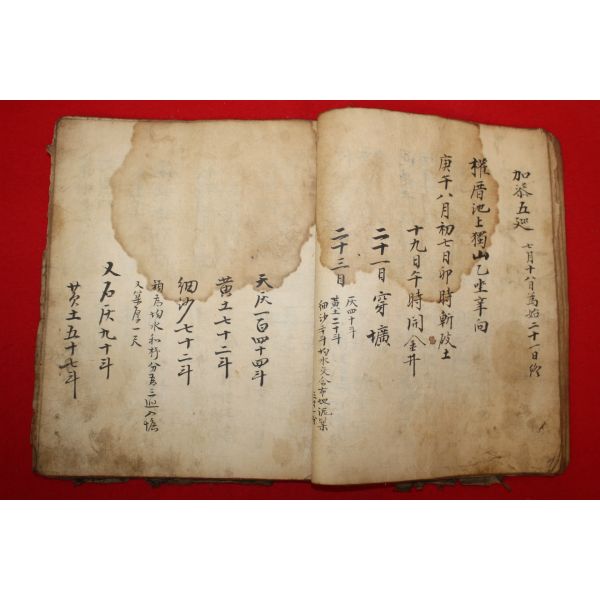 加漆五巡 七月十八日為始二十一日終
權厝池上獨山乙坐辛向
庚午八月初七日卯時斬破土
十九日午時開金井
二十一日穿壙
二十三日 灰四十斗
黃土二十斗
細沙二十斗均水交合布地泥築
天灰一百四十四斗
黃土七十二斗
細沙七十二斗
均水和
又築厚一尺
又石灰九十斗
黃土五十七斗